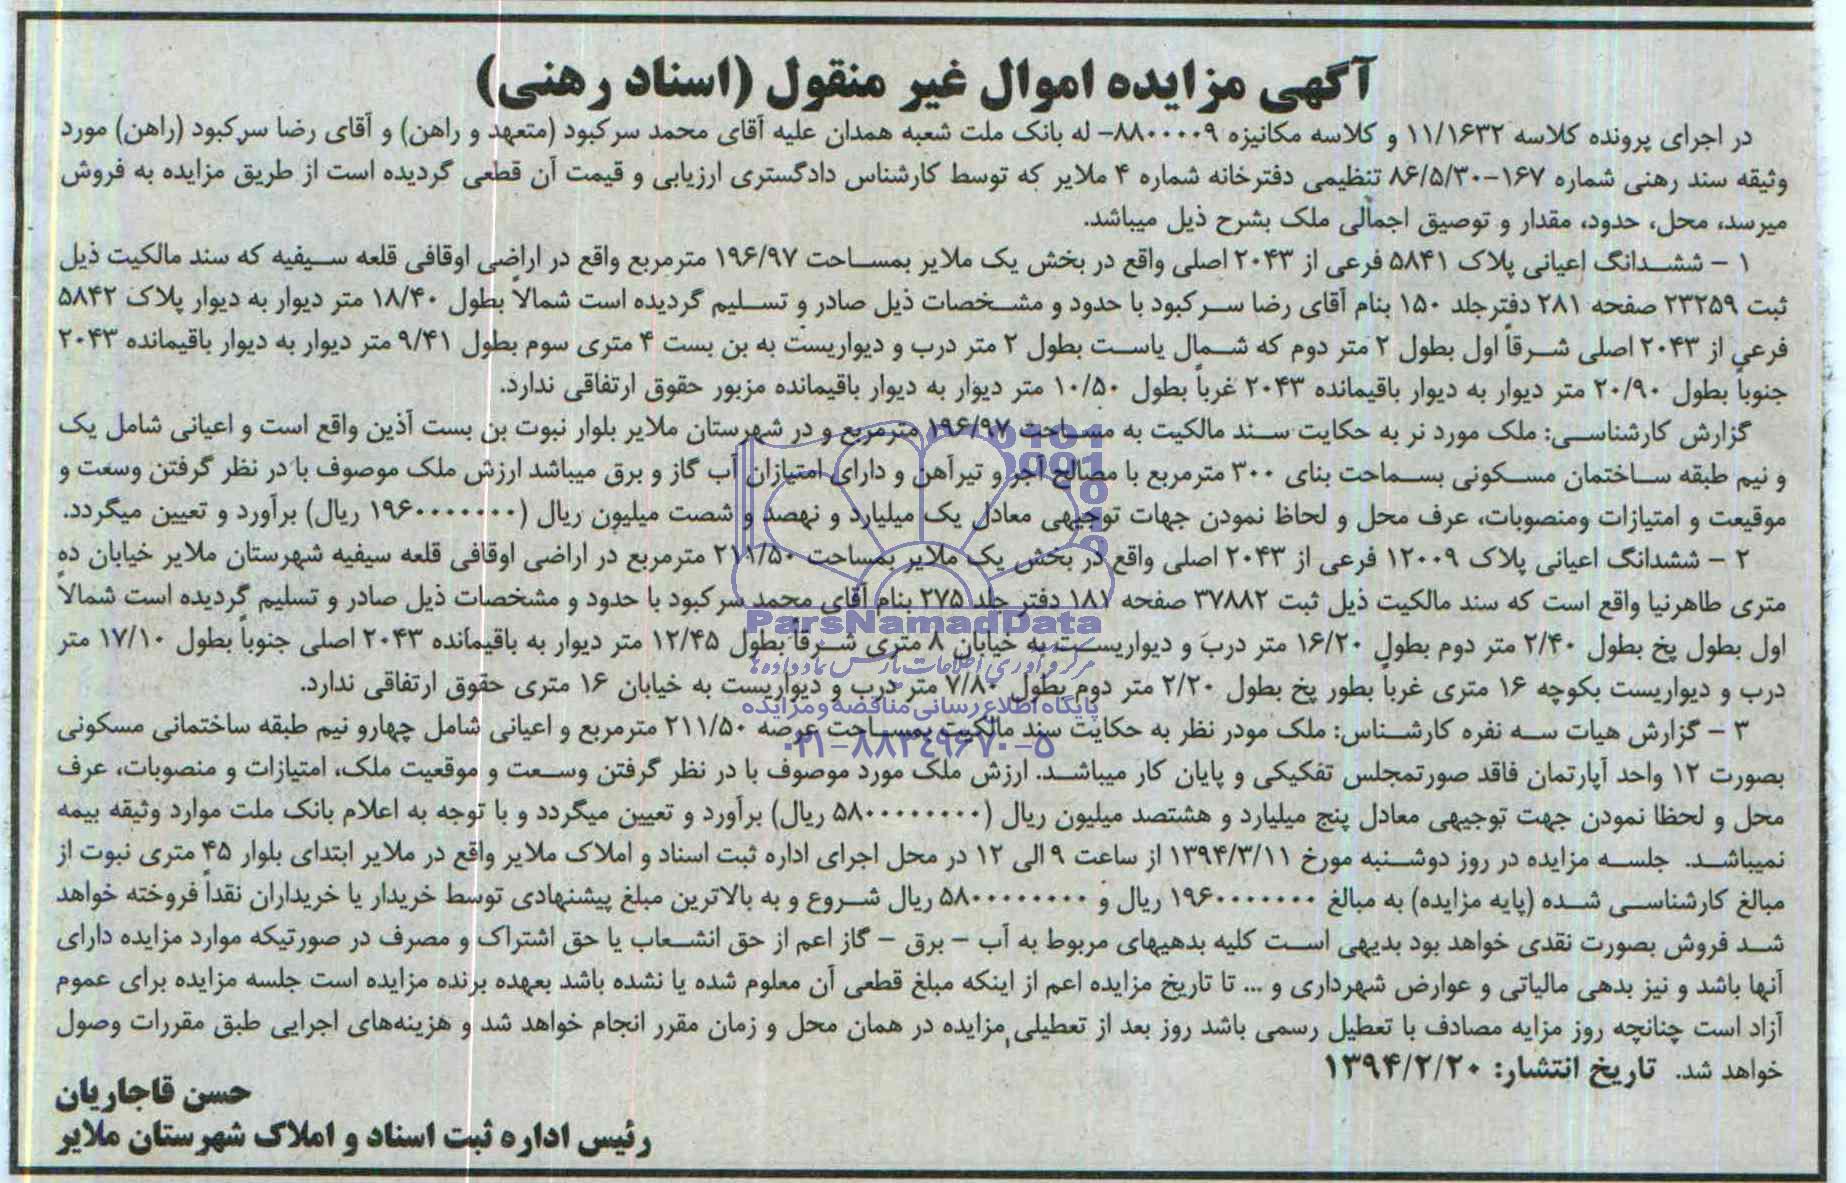 آگهی مزایده اموال غیر منقول (اسناد رهنی)
در اجرای پرونده کلاسه ۱۱/۱۶۳۲ و کلاسه مکانیزه ۸۸۰۰۰۰۹- له بانک ملت شعبه همدان علیه آقای محمد سرکبود (متعهد و راهن) و آقای رضا سرکبود (راهن) مورد
وثیقه سند رهنی شماره ۱۶۷-۸۶/۵/۳۰ تنظیمی دفترخانه شماره ۴ ملایر که توسط کارشناس دادگستری ارزیابی و قیمت آن قطعی گردیده است از طریق مزایده به فروش
میرسد، محل، حدود، مقدار و توصیق اجمالی ملک بشرح ذیل میباشد.
۱ – ششدانگ اعیانی پلاک ۵۸۴۱ فرعی از ۲۰۴۳ اصلی واقع در بخش یک ملایر بمساحت ۱۹۶/۹۷ مترمربع واقع در اراضی اوقافی قلعه سیفیه که سند مالکیت ذیل
ثبت ۲۳۲۵۹ صفحه ۲۸۱ دفترجلد ۱۵۰ بنام آقای رضا سرکبود با حدود و مشخصات ذیل صادر و تسلیم گردیده است شمالاً بطول ۱۸/۴۰ متر دیوار به دیوار پلاک ۵۸۴۲
فرعی از ۲۰۴۳ اصلی شرقاً اول بطول ۲ متر دوم که شمال یاست بطول ۲ متر درب و دیواریست به بن بست ۴ متری سوم بطول ۹/۴۱ متر دیوار به دیوار باقیمانده ۲۰۴۳
جنوباً بطول ۲۰/۹۰ متر دیوار به دیوار باقیمانده ۲۰۴۳ غرباً بطول ۱۰/۵۰ متر دیوار به دیوار باقیمانده مزبور حقوق ارتفاقی ندارد.
گزارش کارشناسی: ملک مورد نر به حکایت سند مالکیت به مساحت ۱۹۶/۹۷ مترمربع و در شهرستان ملایر بلوار نبوت بن بست آذین واقع است و اعیانی شامل یک
و نیم طبقه ساختمان مسکونی بسماحت بنای ۳۰۰ مترمربع با مصالح آجر و تیرآهن و دارای امتیازان آب گاز و برق میباشد ارزش ملک موصوف با در نظر گرفتن وسعت و
موقیعت و امتیازات ومنصوبات، عرف محل و لحاظ نمودن جهات توجیهی معادل یک میلیارد و نهصد و شصت میلیون ریال (۱۹۶۰۰۰۰۰۰۰ ریال) برآورد و تعیین میگردد.
۲ – ششدانگ اعیانی پلاک ۱۲۰۰۹ فرعی از ۲۰۴۳ اصلی واقع در بخش یک ملایر بمساحت ۲۱۱/۵۰ مترمربع در اراضی اوقافی قلعه سیفیه شهرستان ملایر خیابان ده
متری طاهرنیا واقع است که سند مالکیت ذیل ثبت ۳۷۸۸۲ صفحه ۱۸۱ دفتر جلد ۲۷۵ بنام آقای محمد سرکبود با حدود و مشخصات ذیل صادر و تسلیم گردیده است شمالاً
اول بطول پخ بطول ۲/۴۰ متر دوم بطول ۱۶/۲۰ متر درب و دیواریست به خیابان ۸ متری شرقاً بطول ۱۲/۴۵ متر دیوار به باقیمانده ۲۰۴۳ اصلی جنوباً بطول ۱۷/۱۰ متر
درب و دیواریست بکوچه ۱۶ متری غرباً بطور پخ بطول ۲/۲۰ متر دوم بطول ۷/۸۰ متر درب و دیواریست به خیابان ۱۶ متری حقوق ارتفاقی ندارد.
۳ – گزارش هیات سه نفره کارشناس: ملک مودر نظر به حکایت سند مالکیت بمساحت عرصه ۲۱۱/۵۰ مترمربع و اعیانی شامل چهارو نیم طبقه ساختمانی مسکونی
بصورت ۱۲ واحد آپارتمان فاقد صورتمجلس تفکیکی و پایان کار میباشد. ارزش ملک مورد موصوف با در نظر گرفتن وسعت و موقعیت ملک، امتیازات و منصوبات، عرف
محل و لحظا نمودن جهت توجیهی معادل پنج میلیارد و هشتصد میلیون ریال (۵۸۰۰۰۰۰۰۰۰ ریال) برآورد و تعیین میگردد و با توجه به اعلام بانک ملت موارد وثیقه بیمه
نمیباشد. جلسه مزایده در روز دوشنبه مورخ ۱۳۹۴/۳/۱۱ از ساعت ۹ الی ۱۲ در محل اجرای اداره ثبت اسناد و املاک ملایر واقع در ملایر ابتدای بلوار ۴۵ متری نبوت از
مبالغ کارشناسی شده (پایه مزایده) به مبالغ ۱۹۶۰۰۰۰۰۰۰ ریال و ۵۸۰۰۰۰۰۰۰۰ ریال شروع و به بالاترین مبلغ پیشنهادی توسط خریدار یا خریداران نقداً فروخته خواهد
شد فروش بصورت نقدی خواهد بود بدیهی است کلیه بدهیهای مربوط به آب – برق – گاز اعم از حق انشعاب یا حق اشتراک و مصرف در صورتیکه موارد مزایده دارای
آنها باشد و نیز بدهی مالیاتی و عوارض شهرداری و ... تا تاریخ مزایده اعم از اینکه مبلغ قطعی آن معلوم شده یا نشده باشد بعهده برنده مزایده است جلسه مزایده برای عموم
آزاد است چنانچه روز مزایه مصادف با تعطیل رسمی باشد روز بعد از تعطیلی مزایده در همان محل و زمان مقرر انجام خواهد شد و هزینه‌های اجرایی طبق مقررات وصول
خواهد شد. تاریخ انتشار: ۱۳۹۴/۲/۲۰
حسن قاجاریان
رئیس اداره ثبت اسناد و املاک شهرستان ملایر
ParsNamadData
مرکز فرآوری اطلاعات پارس نماد داده ها
پایگاه اطلاع رسانی مناقصه و مزایده
۰۲۱-۸۸۳۴۹۶۷۰-۵